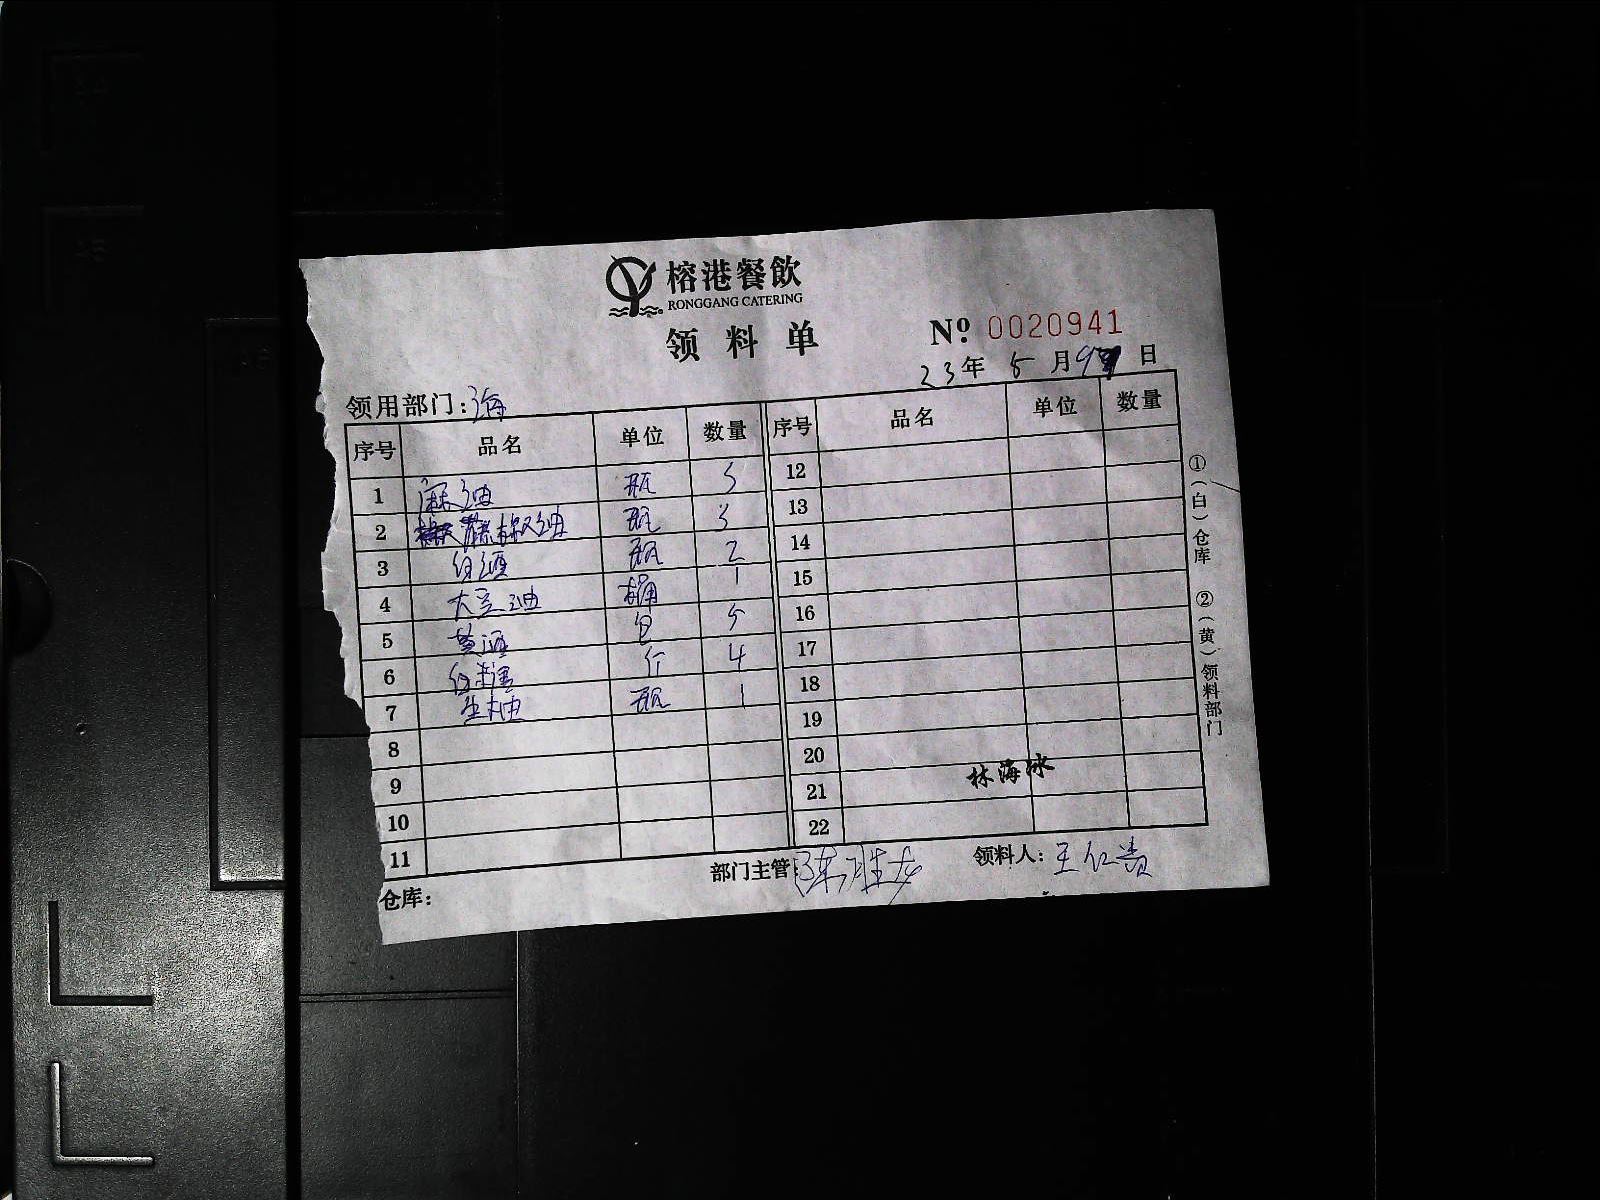 榕港餐飲
RONGGANG CATERING
领料单
Nº: 0020941
23年 5月 9日
领用部门: 海
序号 品名 单位 数量 序号 品名 单位 数量
1 麻油 瓶 5 12
2 藤椒油 瓶 3 13
3 白酒 瓶 2 14
4 大豆油 桶 1 15
5 黄酒 包 5 16
6 白糖 斤 4 17
7 生抽 瓶 1 18
8 19
9 20
10 21 林海冰
11 22
仓库: 部门主管: 陈胜龙 领料人: 王仁贵
①(白)仓库 ②(黄)领料部门